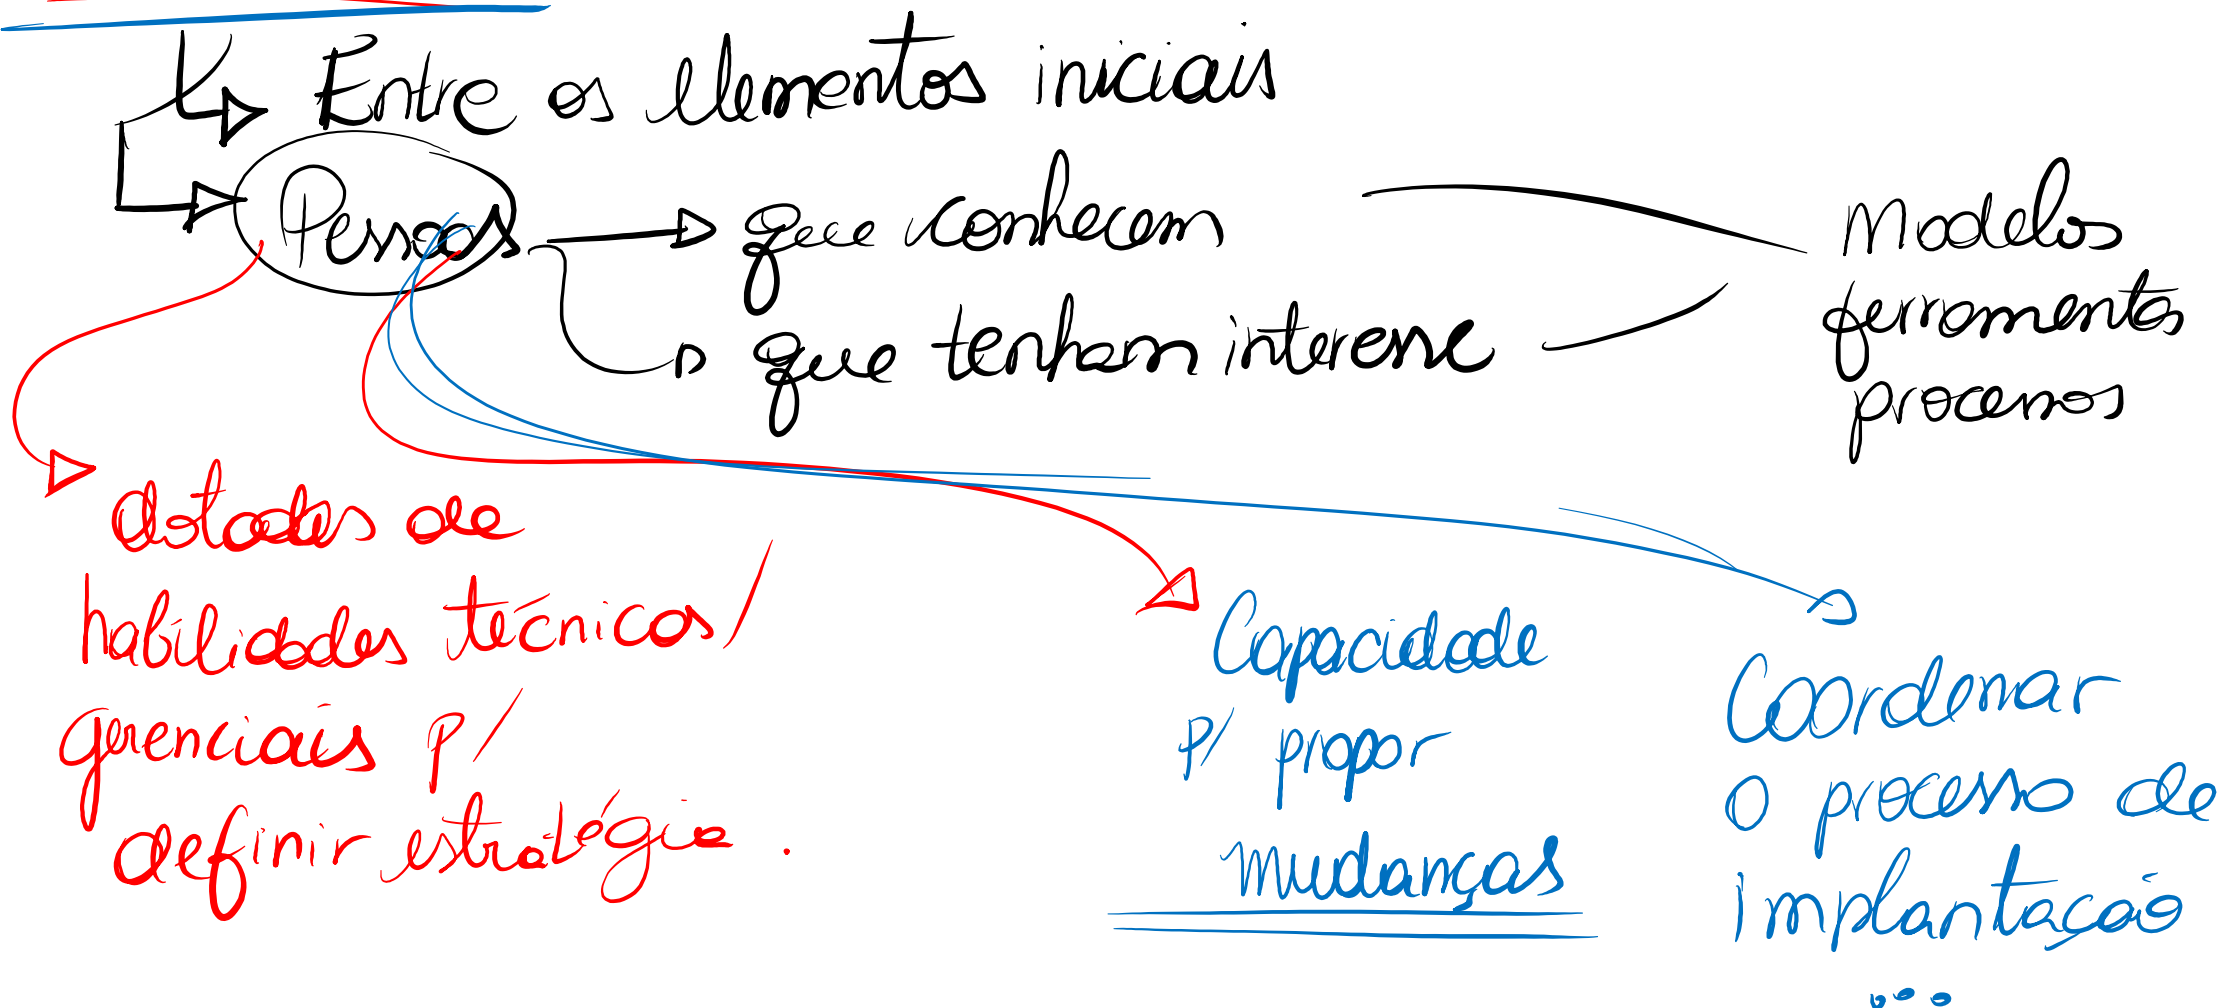 Entre os elementos iniciais
Pessoas
que conhecem
que tenham interesse
Modelos
ferramentas
processos
dotadas de
habilidades técnicas/
gerenciais p/
definir estratégia.
Capacidade
p/ propor
mudanças
Coordenar
o processo de
implantação
...